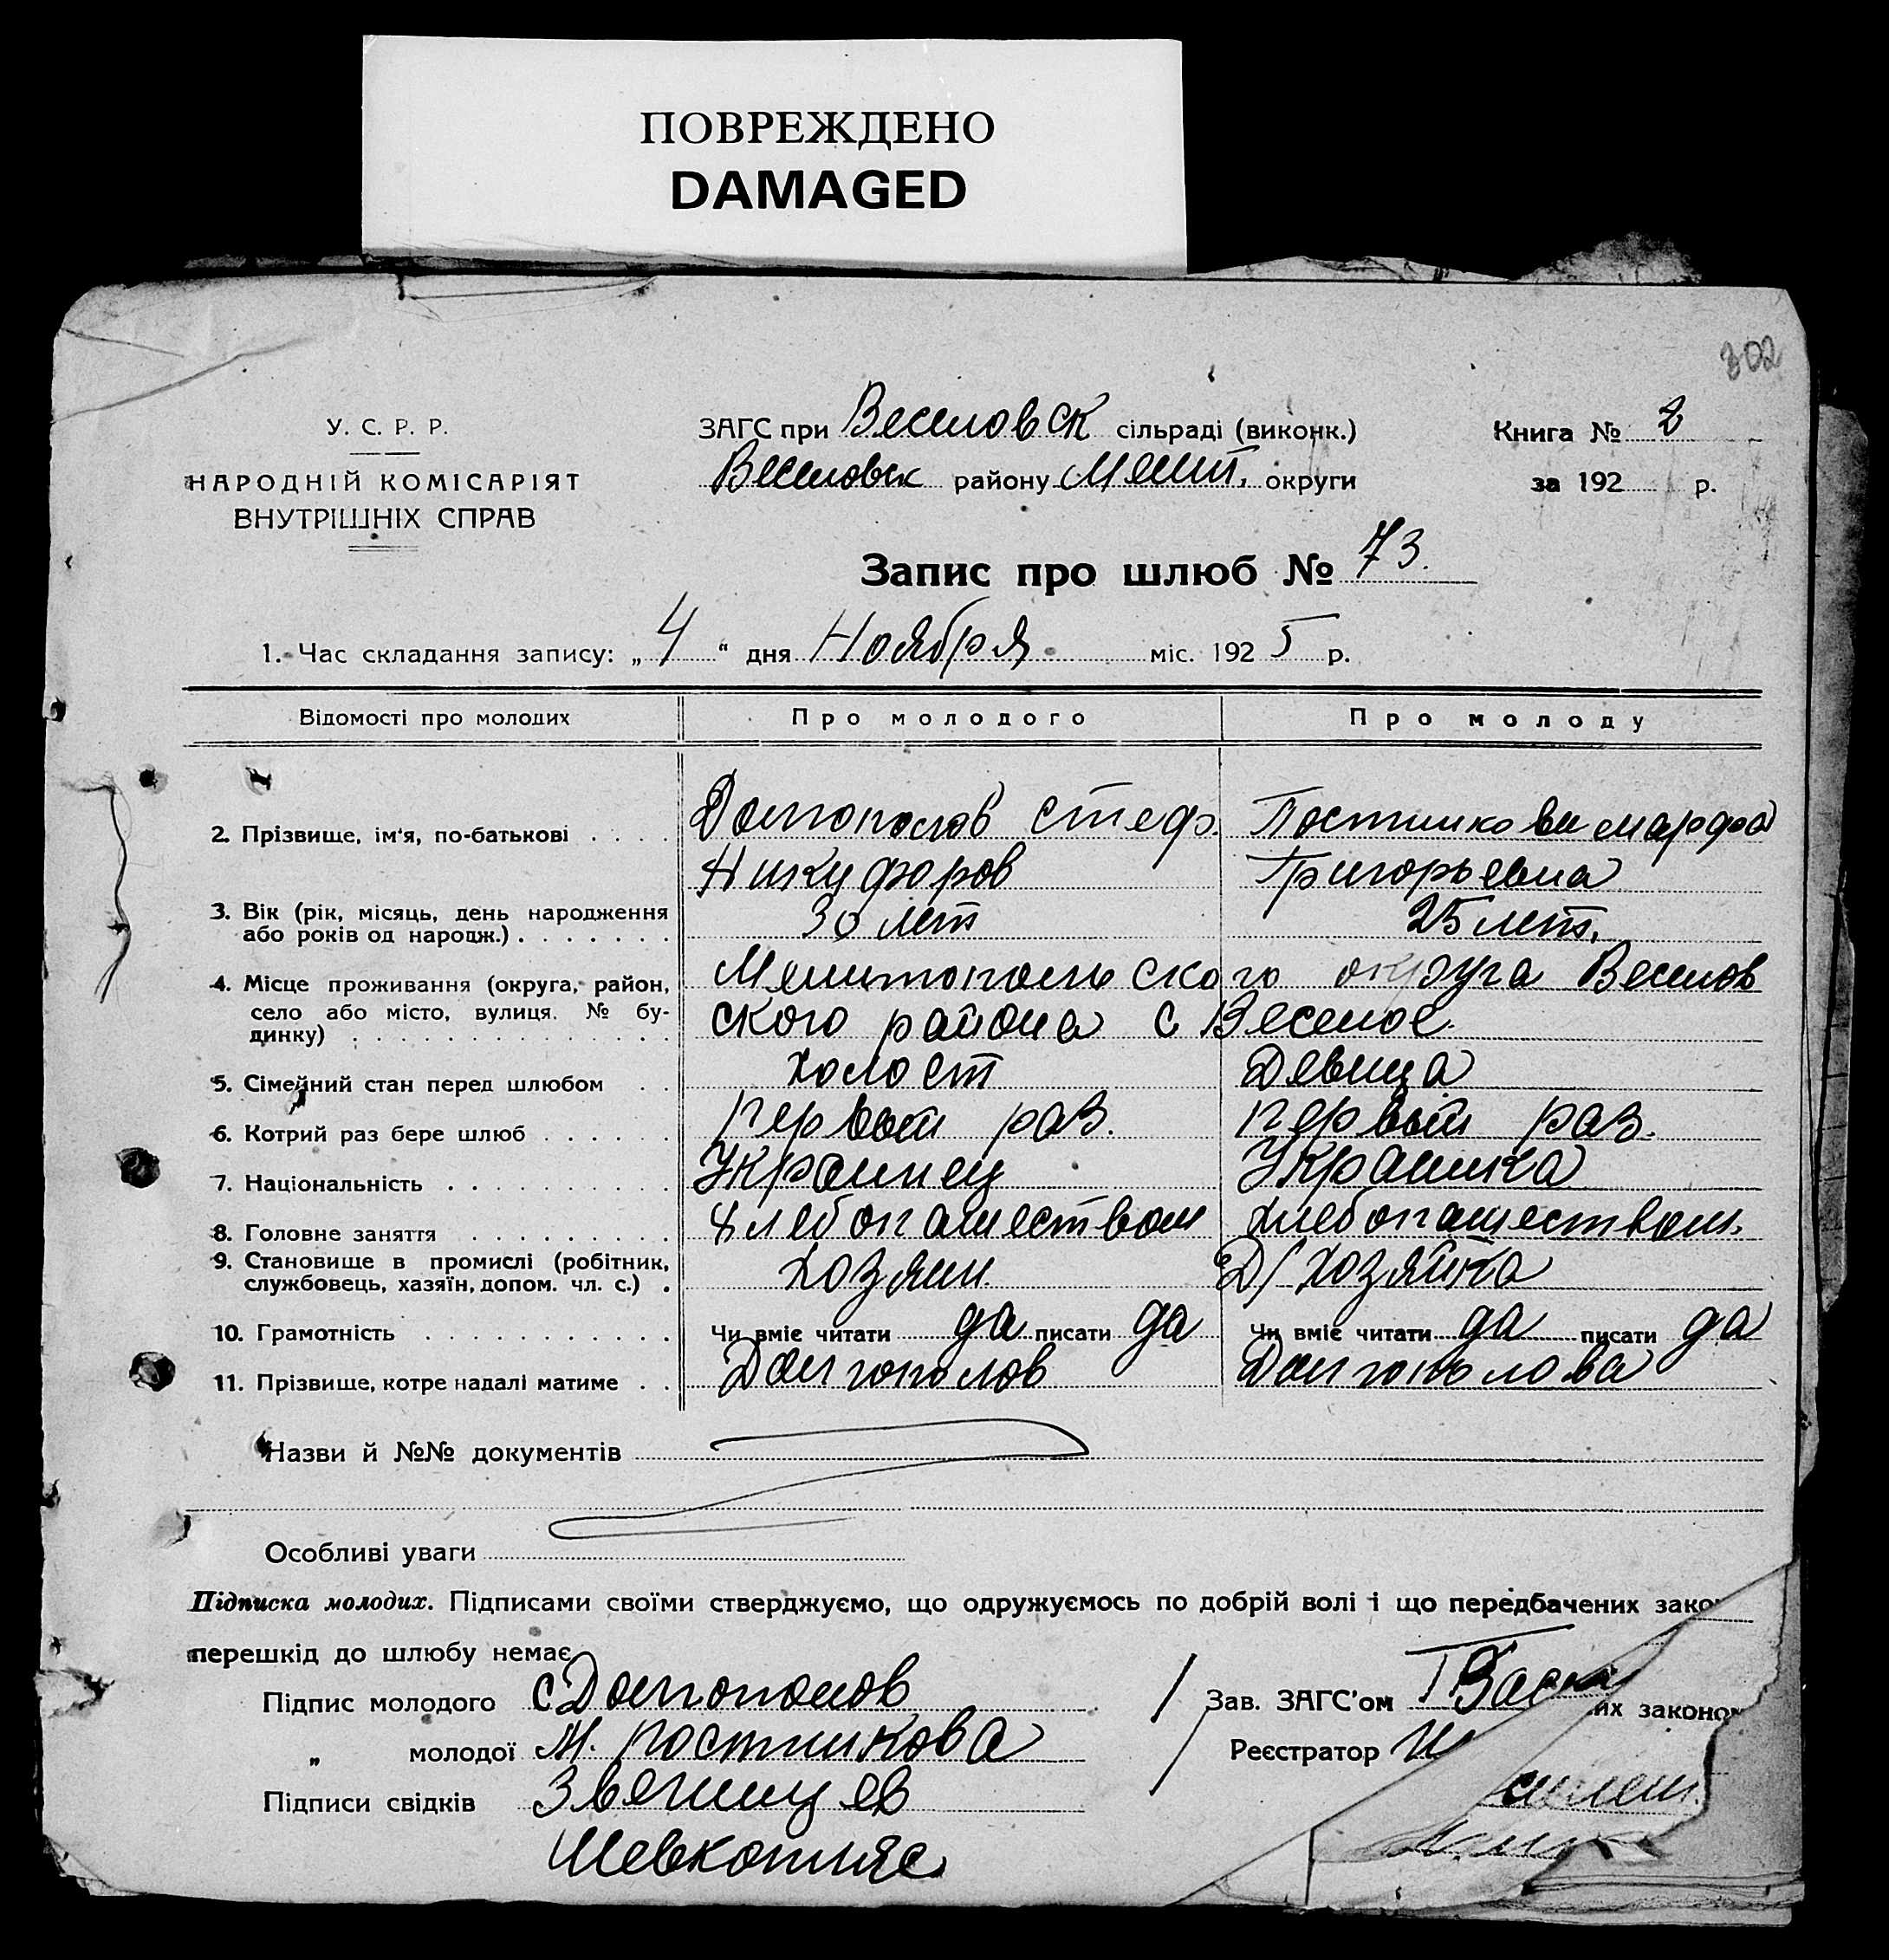 ПОВРЕЖДЕНО
DAMAGED
302
У. С. Р. Р.
НАРОДНІЙ КОМІСАРІЯТ
ВНУТРІШНІХ СПРАВ
ЗАГС при Веселовск сільраді (виконк.)
Веселовск району Мелит. округи
Книга № 2
за 192 р.
Запис про шлюб № 73.
1. Час складання запису: „ 4 “ дня Ноября міс. 192 5 р.
Відомості про молодих Про молодого Про молоду
2. Прізвище, ім'я, по-батькові . . . . Долгополов Стеф. Постникови Марфа
Никифоров Григорьевна
3. Вік (рік, місяць, день народження 30 лет 25 лет.
або років од народж.) . . . . . . .
4. Місце проживання (округа, район, Мелитопольского округа Веселов
село або місто, вулиця. № бу- ского района с Веселое.
динку) . . . . . . . . . . . . . .
5. Сімейний стан перед шлюбом . . холост Девица
6. Котрий раз бере шлюб . . . . . . первый раз. первый раз.
7. Національність . . . . . . . . . . Украинец Украинка
8. Головне заняття . . . . . . . . . хлебопашеством хлебопашеством.
9. Становище в промислі (робітник, хозяин Д/хозяйка
службовець, хазяїн, допом. чл. с.) .
10. Грамотність . . . . . . . . . . . Чи вміє читати да писати да Чи вміє читати да писати да
11. Прізвище, котре надалі матиме . . Долгополов Долгополова
Назви й №№ документів
Особливі уваги
Підписка молодих. Підписами своїми стверджуємо, що одружуємось по добрій волі і що передбачених зако
перешкід до шлюбу немає
Підпис молодого С Долгополов Зав. ЗАГС'ом
их законом
„ молодої М. Постникова Реєстратор
Підписи свідків Звегинцев